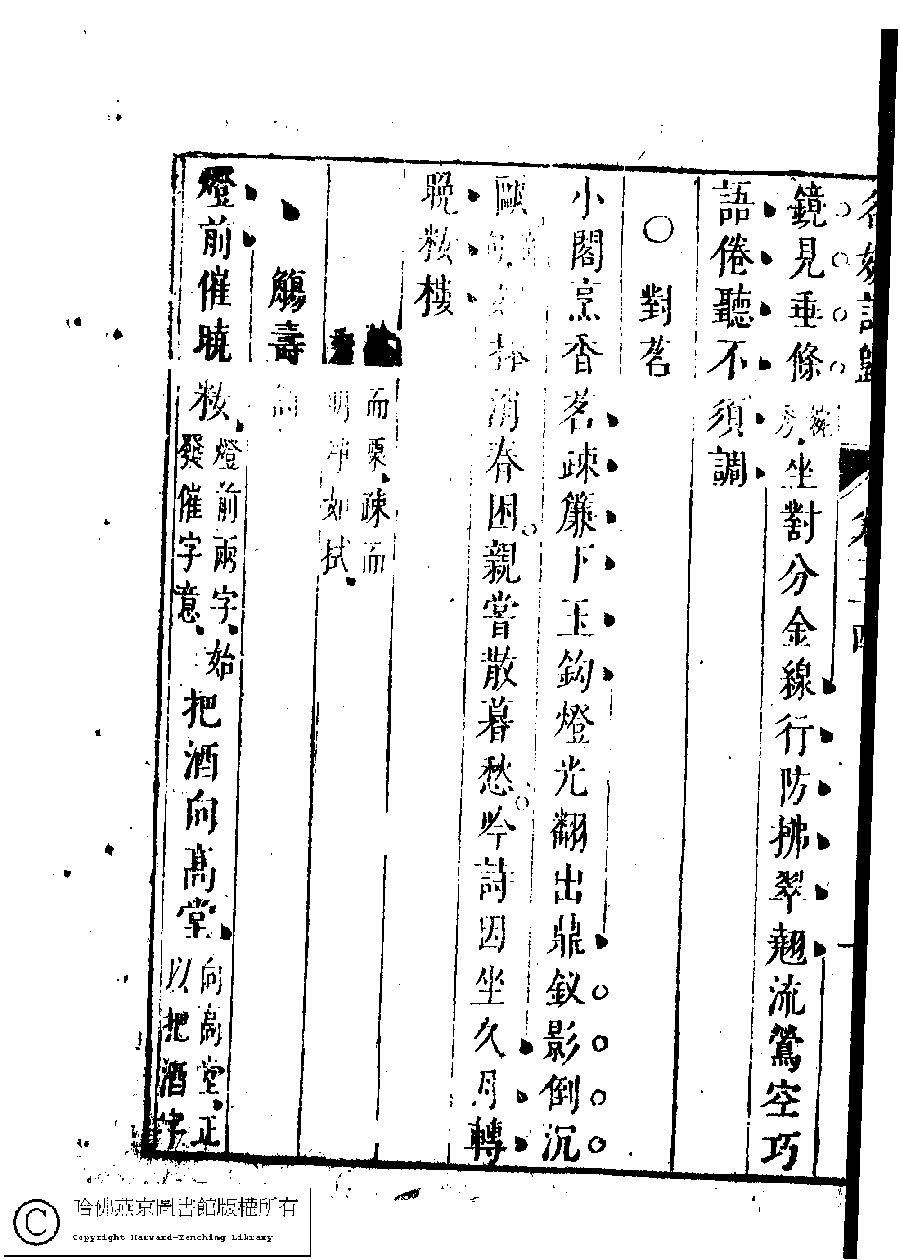 名媛詩歸
鏡見垂條 秀 坐對分金線行防拂翠翹流鶯空巧
語倦聽不須調
○對茗
小閣烹香茗疎簾下玉鈎燈光翻出鼎釵影倒沉
甌 捧消春困親嘗散暮愁吟詩因坐久月轉
晚粧樓
而栗疎而
明淨如拭
觴壽詞
燈前催曉粧 燈前兩字始 發催字意 把酒向高堂 向高堂正 以把酒字
哈佛燕京圖書館版權所有
Copyright Harvard-Yenching Library